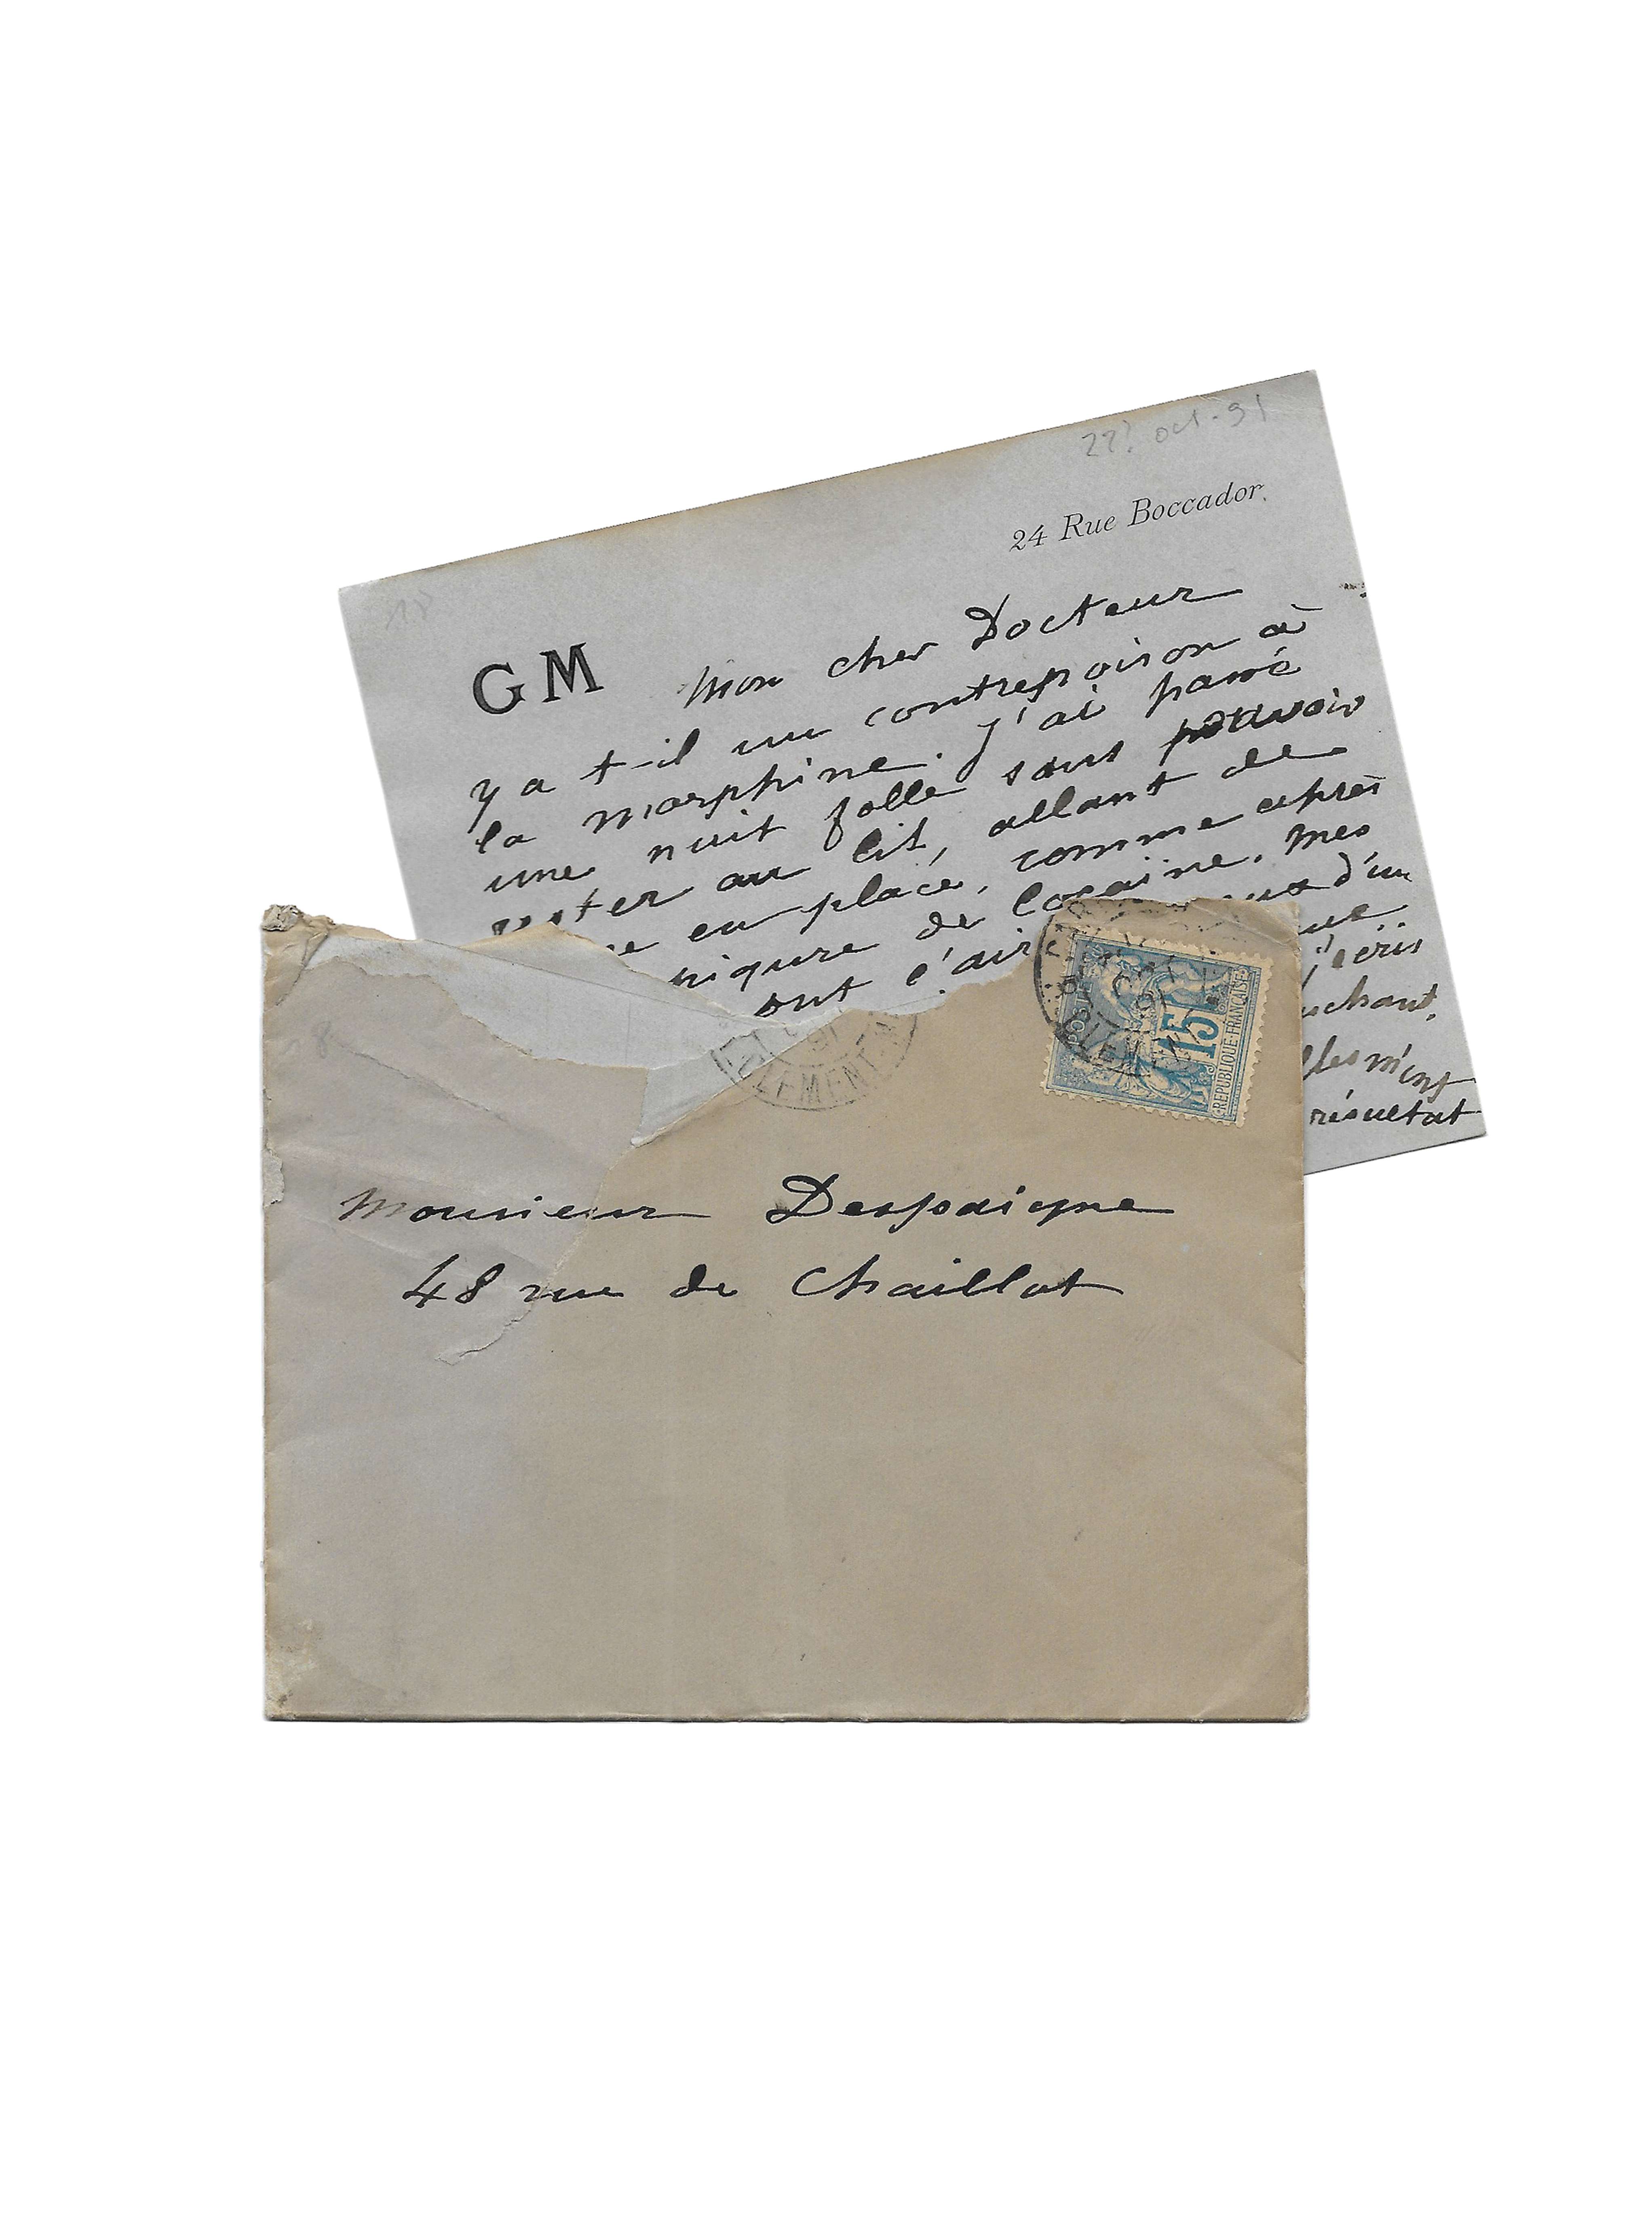 22? oct. 91
24 Rue Boccador.
18
GM
Mon cher Docteur
y a t-il un contrepoison à
la morphine. J'ai passé
une nuit folle sans pouvoir
rester au lit, allant de
en place, comme après
piqure de Cocaïne. Mes
ont l'air d'un
j'écris
Elles m'ont
résultat
15
REPUBLIQUE FRANÇAISE
Monsieur Despaigne
48 rue de Chaillot